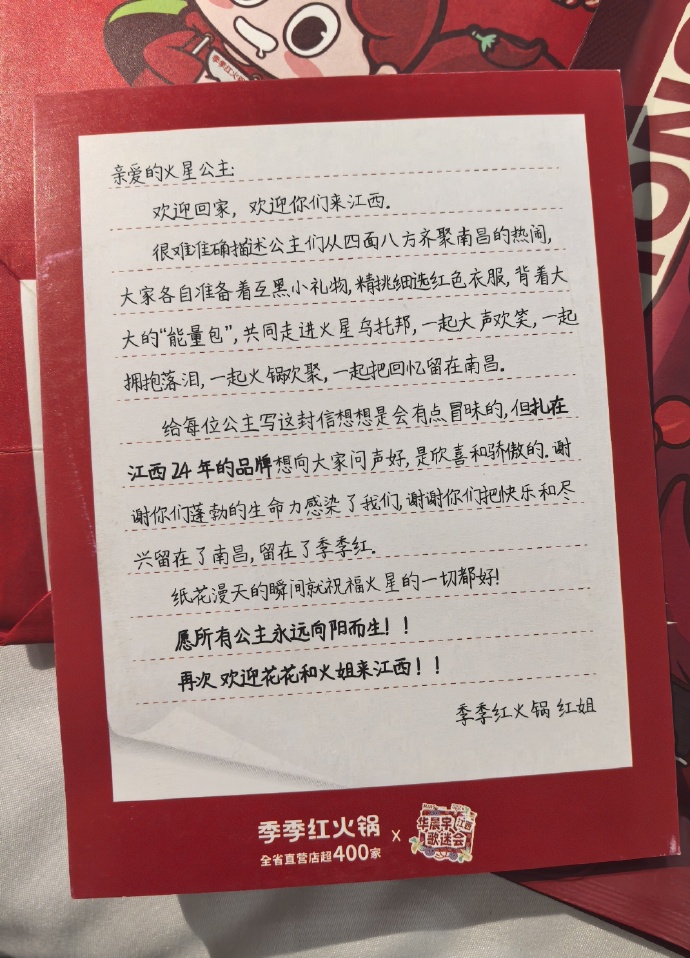 季季红火锅
亲爱的火星公主:
欢迎回家，欢迎你们来江西.
很难准确描述公主们从四面八方齐聚南昌的热闹,
大家各自准备着互黑小礼物,精挑细选红色衣服,背着大
大的“能量包”,共同走进火星乌托邦,一起大声欢笑,一起
拥抱落泪,一起火锅欢聚,一起把回忆留在南昌.
给每位公主写这封信想想是会有点冒昧的,但扎在
江西24年的品牌想向大家问声好,是欣喜和骄傲的.谢
谢你们蓬勃的生命力感染了我们,谢谢你们把快乐和尽
兴留在了南昌,留在了季季红.
纸花漫天的瞬间就祝福火星的一切都好!
愿所有公主永远向阳而生！！
再次欢迎花花和火姐来江西！！
季季红火锅 红姐
季季红火锅 x 华晨宇 江西 歌迷会
全省直营店超400家